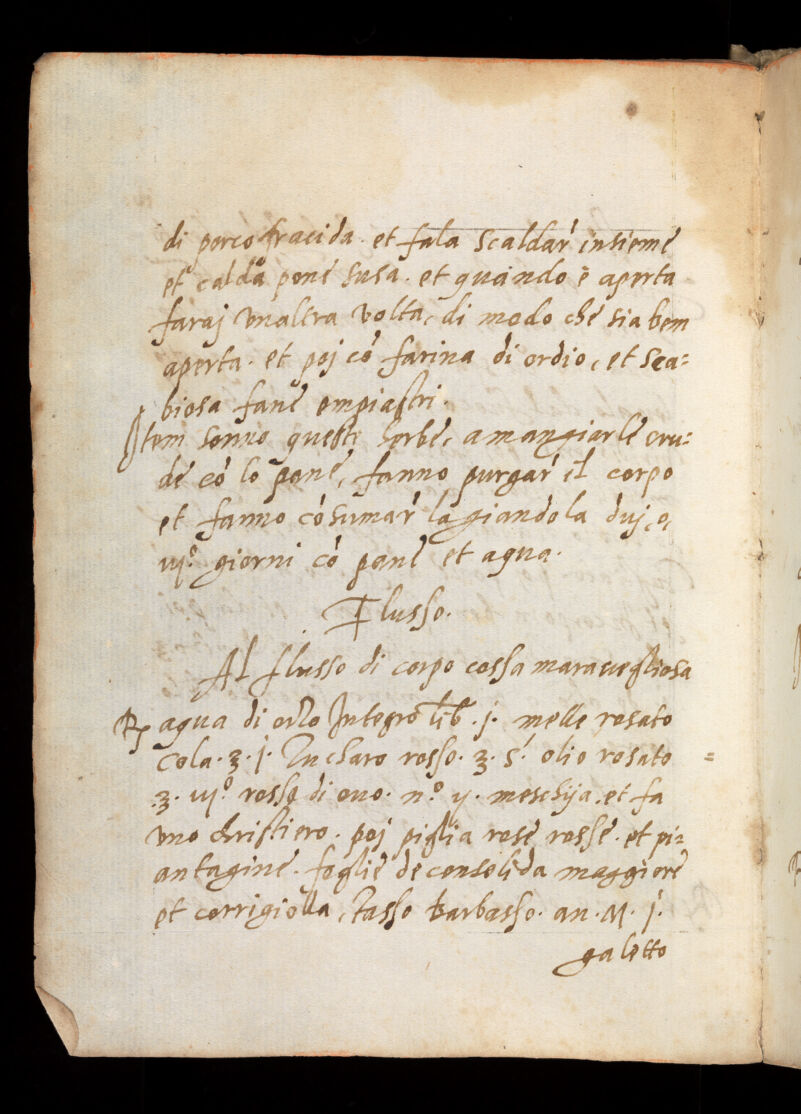 di porco fracida. et fala scaldar' insieme
et calda pone susa. et quando è aperta
faraj unaltra volta, di modo che sia ben
aperta. et poj có farina di ordio, et sca:
biosa fane empiastri.
Item sonno queste herbe, a mangiarle cru:
de có lo pane, fanno purgar' il corpo
et fanno cósumar' la giandola duj, o,
iij.° giorni có pane et aqua.
Flusso.
Al flusso di corpo cossa maravegliosa
℞ aqua di orzo Integro lib. j. melle rosato
cola. ʒ. j. Zucharo rosso. ʒ. s. olio rosato =
ʒ. iij.° rosso di ovo. n.° ij. meschija. et fa
uno christiero. poj piglia rose rosse. et pi=
antagine. foglie de consolida maggiore
et corrigiolla, tasso barbasso. an. M. j.
galetto